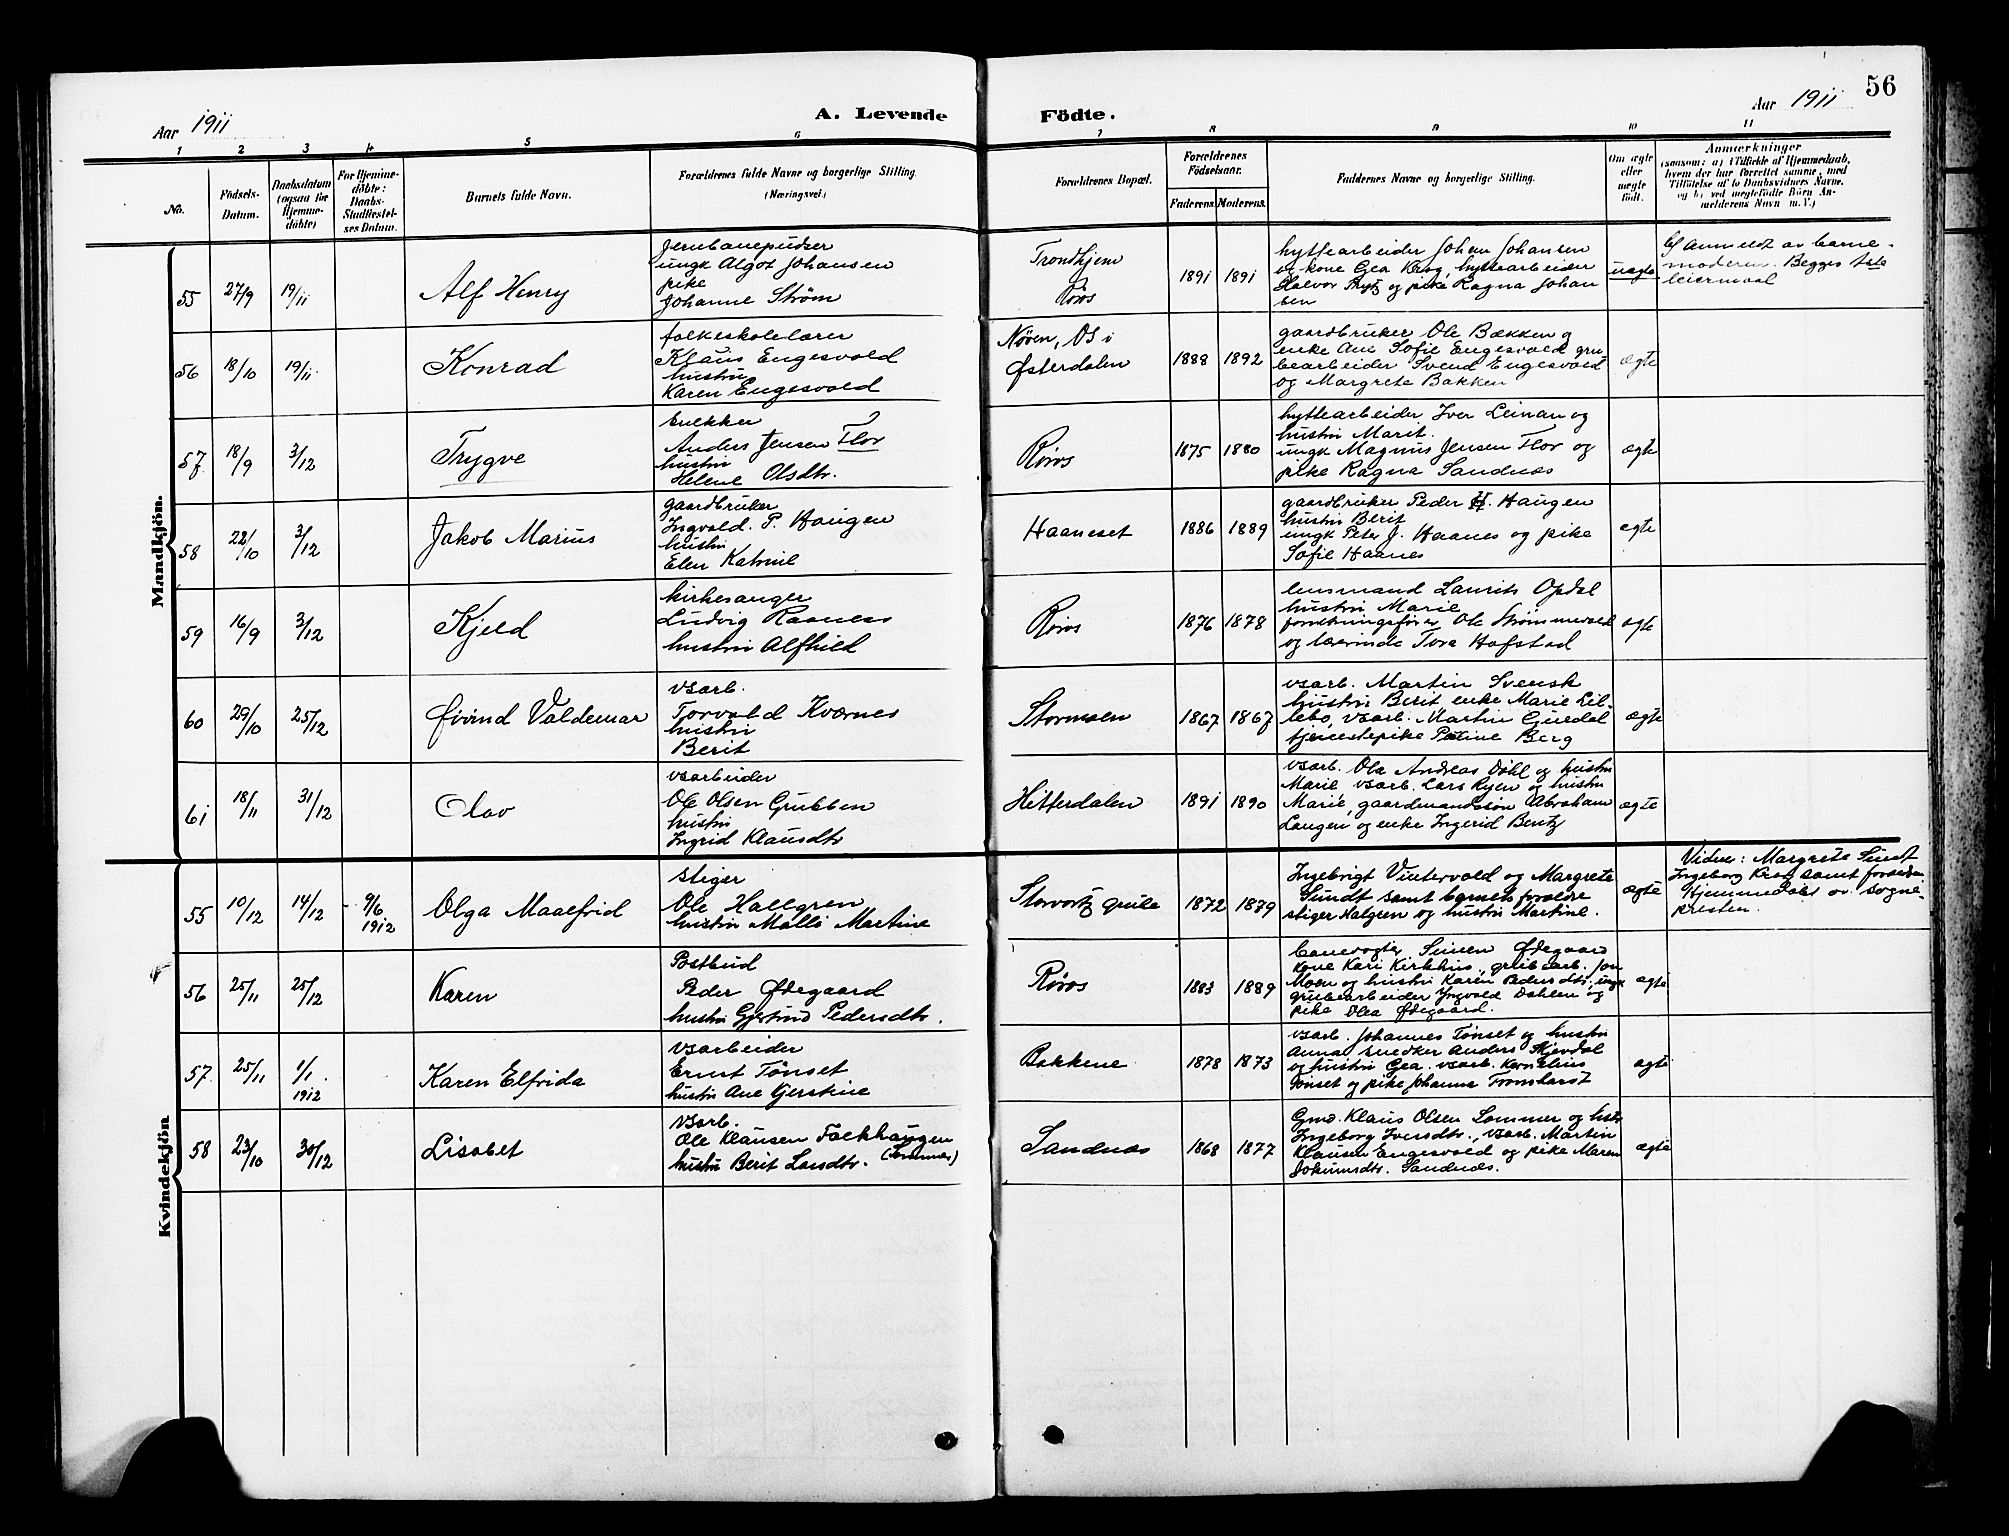 56
Aar 1911
A. Levende Födte.
Aar 1911
1 2 3 4 5 6 7 8 9 10 11
No.
Födsels-
Datum.
Daabsdatum
(ogsaa for
Hjemme-
döbte)
For Hjemme-
döbte:
Daabs-
Stadfestel-
ses Datum.
Barnets fulde Navn.
Forældrenes fulde Navne og borgerlige Stilling.
(Næringsvei.)
Forældrenes Bopæl.
Forældrenes
Födselsaar.
Faderens.
Moderens.
Faddernes Navne og borgerlige Stilling.
Om ægte
eller
uægte
født.
Anmærkninger
(saasom: a) i Tilfælde af Hjemmedaab,
hvem der har forrettet samme, med
Tilföielse af to Daabsvidners Navne,
og b) ved uegtefödte Börn An-
melderens Navn m. V.)
Mandkjön.
55 27/9 19/11
Alf Henry
Jernbanepudser
ungk Algot Johansen
pike
Johanne Strøm
Trondhjem
Røros
1891 1891
hyttearbeider Johan Johansen
og kone Gea Krog, hyttearbeider
Halvor Prytz og pike Ragna Johan
sen
uægte
b) Anmeldt av barne-
moderen. Begges 1ste
leiermaal
56 18/10 19/11
Konrad
folkeskolelærer
Klaus Engesvold
hustru
Karen Engesvold
Nøren, Os i
Østerdalen
1888 1892
gaardbruker Ole Bækken og
enke Ane Sofie Engesvold gru-
bearbeider Svend Engesvold
og Margrete Bakken
ægte
57. 18/9 3/12
Trygve
snekker
Anders Jensen Flor
hustru
Helene Olsdtr.
Røros
1875 1880
hyttearbeider Iver Leinan og
hustru Marit.
ungk Magnus Jensen Flor og
pike Ragna Sandnæs
ægte
58 22/10 3/12
Jakob Marius
gaardbruker
Ingvald. P. Haugen
hustru
Elen Katrine
Haaneset
1886 1889
gaardbruker Peder H. Haugen
hustru Berit
ungk Peter J. Haanes og pike
Sofie Haanes
ægte
59 16/9 3/12
Kjeld
kirkesanger
Ludvig Raaness
hustru Alfhild
Røros
1876 1878
lensmand Laurits Opdal
hustru Marie
forretningsfører Ole Strømmevold
og lærerinde Tora Hofstad
ægte
60 29/10 25/12
Øivind Valdemar
vsarb.
Torvald Kværnes
hustru
Berit
Stormoen
1867 1867
vsarb. Martin Svensk
hustru Berit enke Marie Lil-
lebo, vsarb. Martin Guldal
tjenestepike Petine Berg
ægte
61 18/11 31/12
Olav
vsarbeider
Ole Olsen Grubben
hustru
Ingrid Klausdtr
Hitterdalen
1891 1890
vsarb. Ole Andreas Dahl og hustru
Marie vsarb. Lars Ryen og hustru
Marie, gaardmandssøn Abraham
Langen og enke Ingerid Bentz
ægte
Kvindekjön
55 10/12 14/12 9/6 1912
Olga Maalfrid
stiger
Ole Hallgren
hustru Malli Martine
Storvortz grube
1872 1879
Ingebrigt Vintervold og Margrete
Sundt samt barnets forældre
stiger Halgren og hustru Martine.
ægte
Vidner: Margrete Sundt
Ingeborg Krog samt forældre
Hjemmedøbt av sogne-
presten.
56 25/11 25/12
Karen
Postbud
Peder Ødegaard
hustru Gjertrud Pedersdtr.
Røros
1883 1889
banevogter Simen Ødegaard
kone Kari Kirkhus, grubearb. Jon
Moen og hustru Karen Pedersdtr, ungk
grubearbeider Ingvald Dahlen og
pike Olea Ødegaard.
ægte
57. 25/11 1/1 1912
Karen Elfrida
vsarbeider
Ernst Tønset
hustru Ane Kjerstine
Bakkene
1878 1873
vsarb. Johannes Tønset og hustru
Anna snedker Anders Skjevdal
og hustru Gea. vsarb. Kornelius
Tønset og pike Johanna Tronshart
ægte
58 23/10 30/12
Lisabet
vsarb.
Ole Klausen Falkhaugen
hustru Berit Larsdtr. (Sommer)
Sandnæs
1868 1877
Gmd. Klaus Olsen Sommer og hustr
Ingeborg Iversdtr., vsarb. Martin
Klausen Engesvold og pike Maren
Joh.dtr. Sandnæs.
ægte